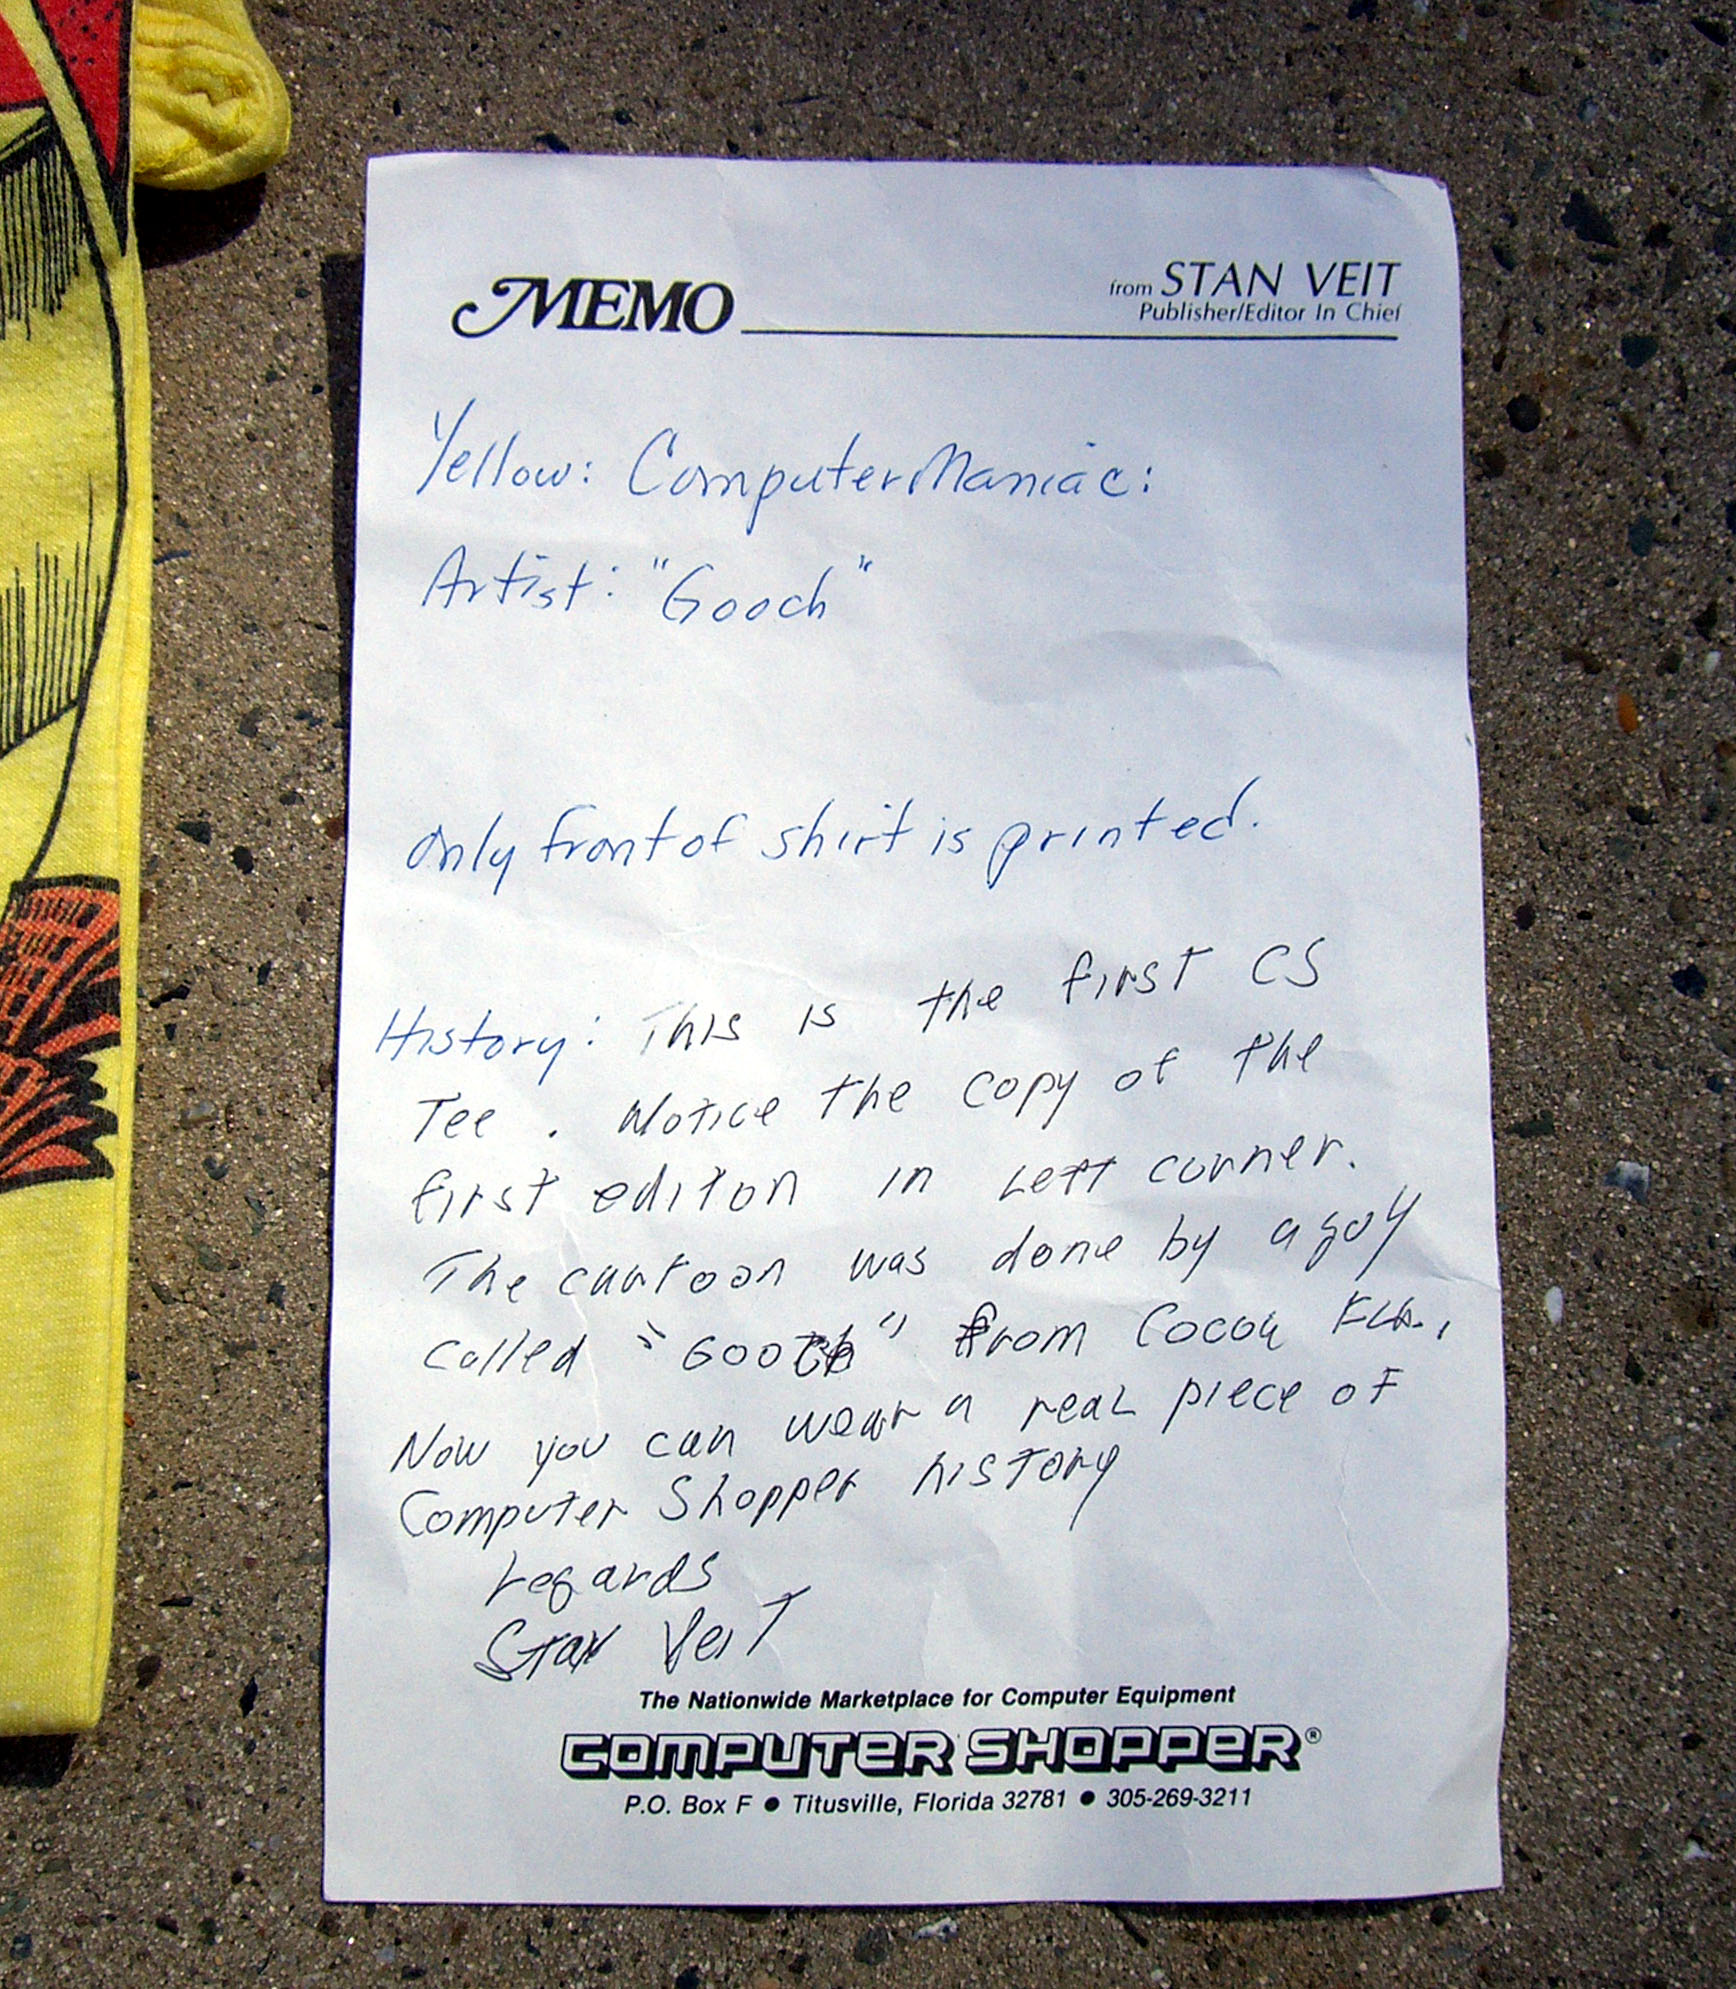 MEMO
from STAN VEIT
Publisher/Editor In Chief
Yellow: Computer Maniac:
Artist: "Gooch"
Only front of shirt is printed.
History: This is the first CS
Tee. Notice the copy of the
first editon in Left corner.
The cartoon was done by a guy
called "Gooch" from Cocoa Fla.,
Now you can wear a real piece of
Computer Shopper history
regards
Stan Veit
The Nationwide Marketplace for Computer Equipment
COMPUTER SHOPPER®
P.O. Box F ● Titusville, Florida 32781 ● 305-269-3211